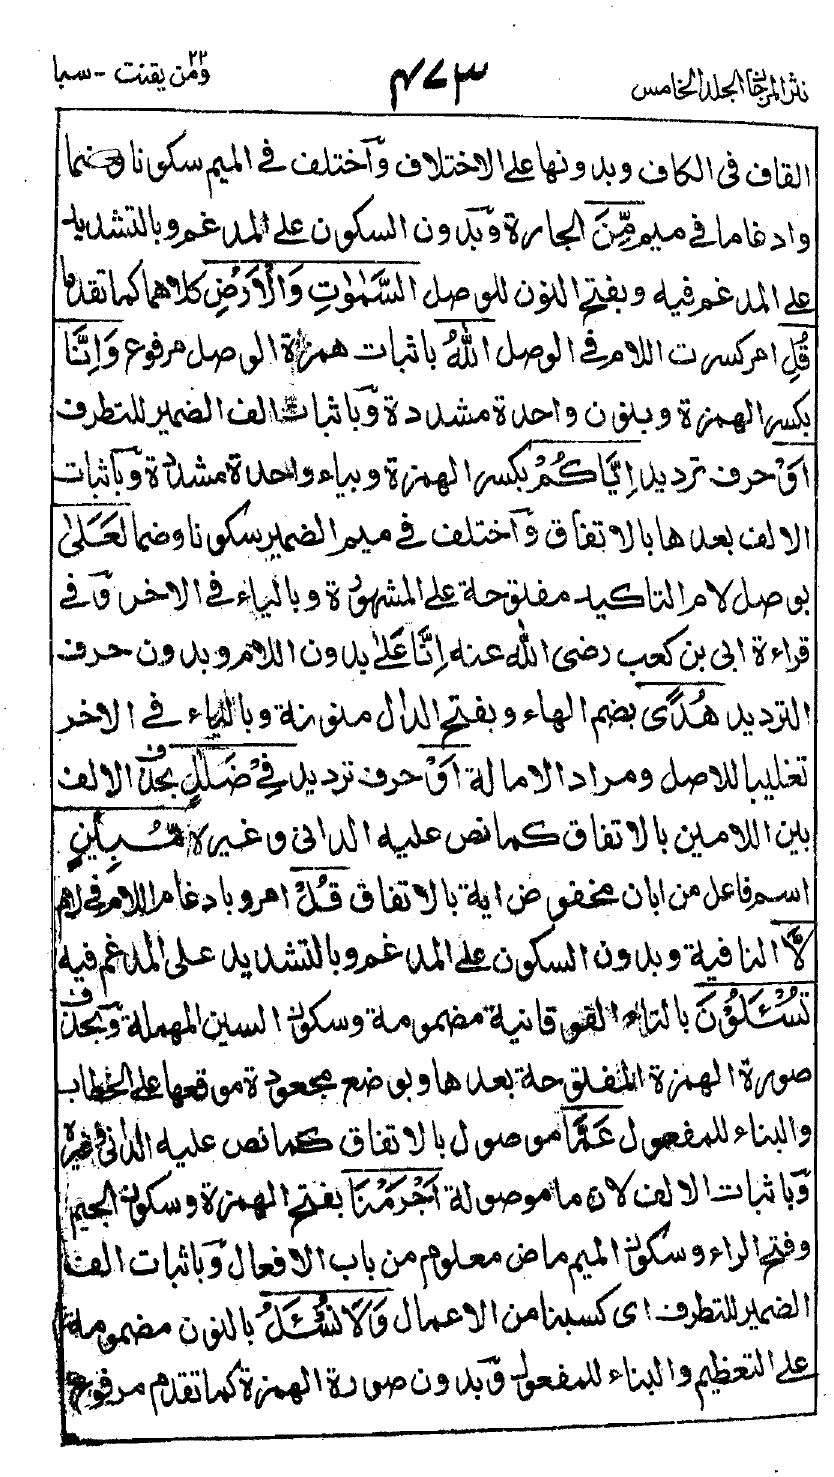 نثر المرجان الجلد الخامس
٤٧٣
ومن يقنت ٢٢ - سبا
القاف فى الكاف وبدونها على الاختلاف وَاختلف فے الميم سكونا وضما
وادغاما فے ميم مِّنَ الجارة وَبدون السكون على المدغم وبالتشديد
على المدغم فيه وبفتح النون للوصل السَّمٰوٰتِ وَالْاَرْضِ كلاهما كما تقدما
قُلِ امر كسرت اللام فے الوصل اللهُ باثبات همزة الوصل مرفوع وَاِنَّا
بكسر الهمزة وبنون واحدة مشددة وَباثبات الف الضمير للتطرف
اَوْ حرف ترديد اِيَّاكُمْ بكسر الهمزة وبياء واحدة مشددة وَباثبات
الالف بعدها بالاتفاق وَاختلف فے ميم الضمير سكونا وضما لَعَلٰى
بوصل لام التاكيد مفتوحة على المشهورة وبالياء فے الاخر وَفے
قراءة ابى بن كعب رضى الله عنه اِنَّا عَلٰى بدون اللام وبدون حرف
الترديد هُدًى بضم الهاء وبفتح الدال منونة وبالياء فے الاخر
تغليبا للاصل ومراد الامالة اَوْ حرف ترديد فِيْ ضَلٰلٍ بحذف الالف
بين اللامين بالاتفاق كما نص عليه الدانى وغيره مُّبِيْنٍ
اسم فاعل من ابان مخفوض اية بالاتفاق قُلْ امر وبادغام اللام فے لام
لَّا النافية وبدون السكون على المدغم وبالتشديد على المدغم فيه
تُسْئَلُوْنَ بالتاء الفوقانية مضمومة وسكون السين المهملة وَبحذف
صورة الهمزة المفتوحة بعدها وبوضع مجعودة موقعها على الخطاب
والبناء للمفعول عَمَّا موصول بالاتفاق كما نص عليه الدانى وغيره
وَباثبات الالف لان ما موصولة اَجْرَمْنَا بفتح الهمزة وسكون الجيم
وفتح الراء وسكون الميم ماض معلوم من باب الافعال وَباثبات الف
الضمير للتطرف اى كسبنا من الاعمال وَلَا نُسْئَلُ بالنون مضمومة
على التعظيم والبناء للمفعول وَبدون صورة الهمزة كما تقدم مرفوع